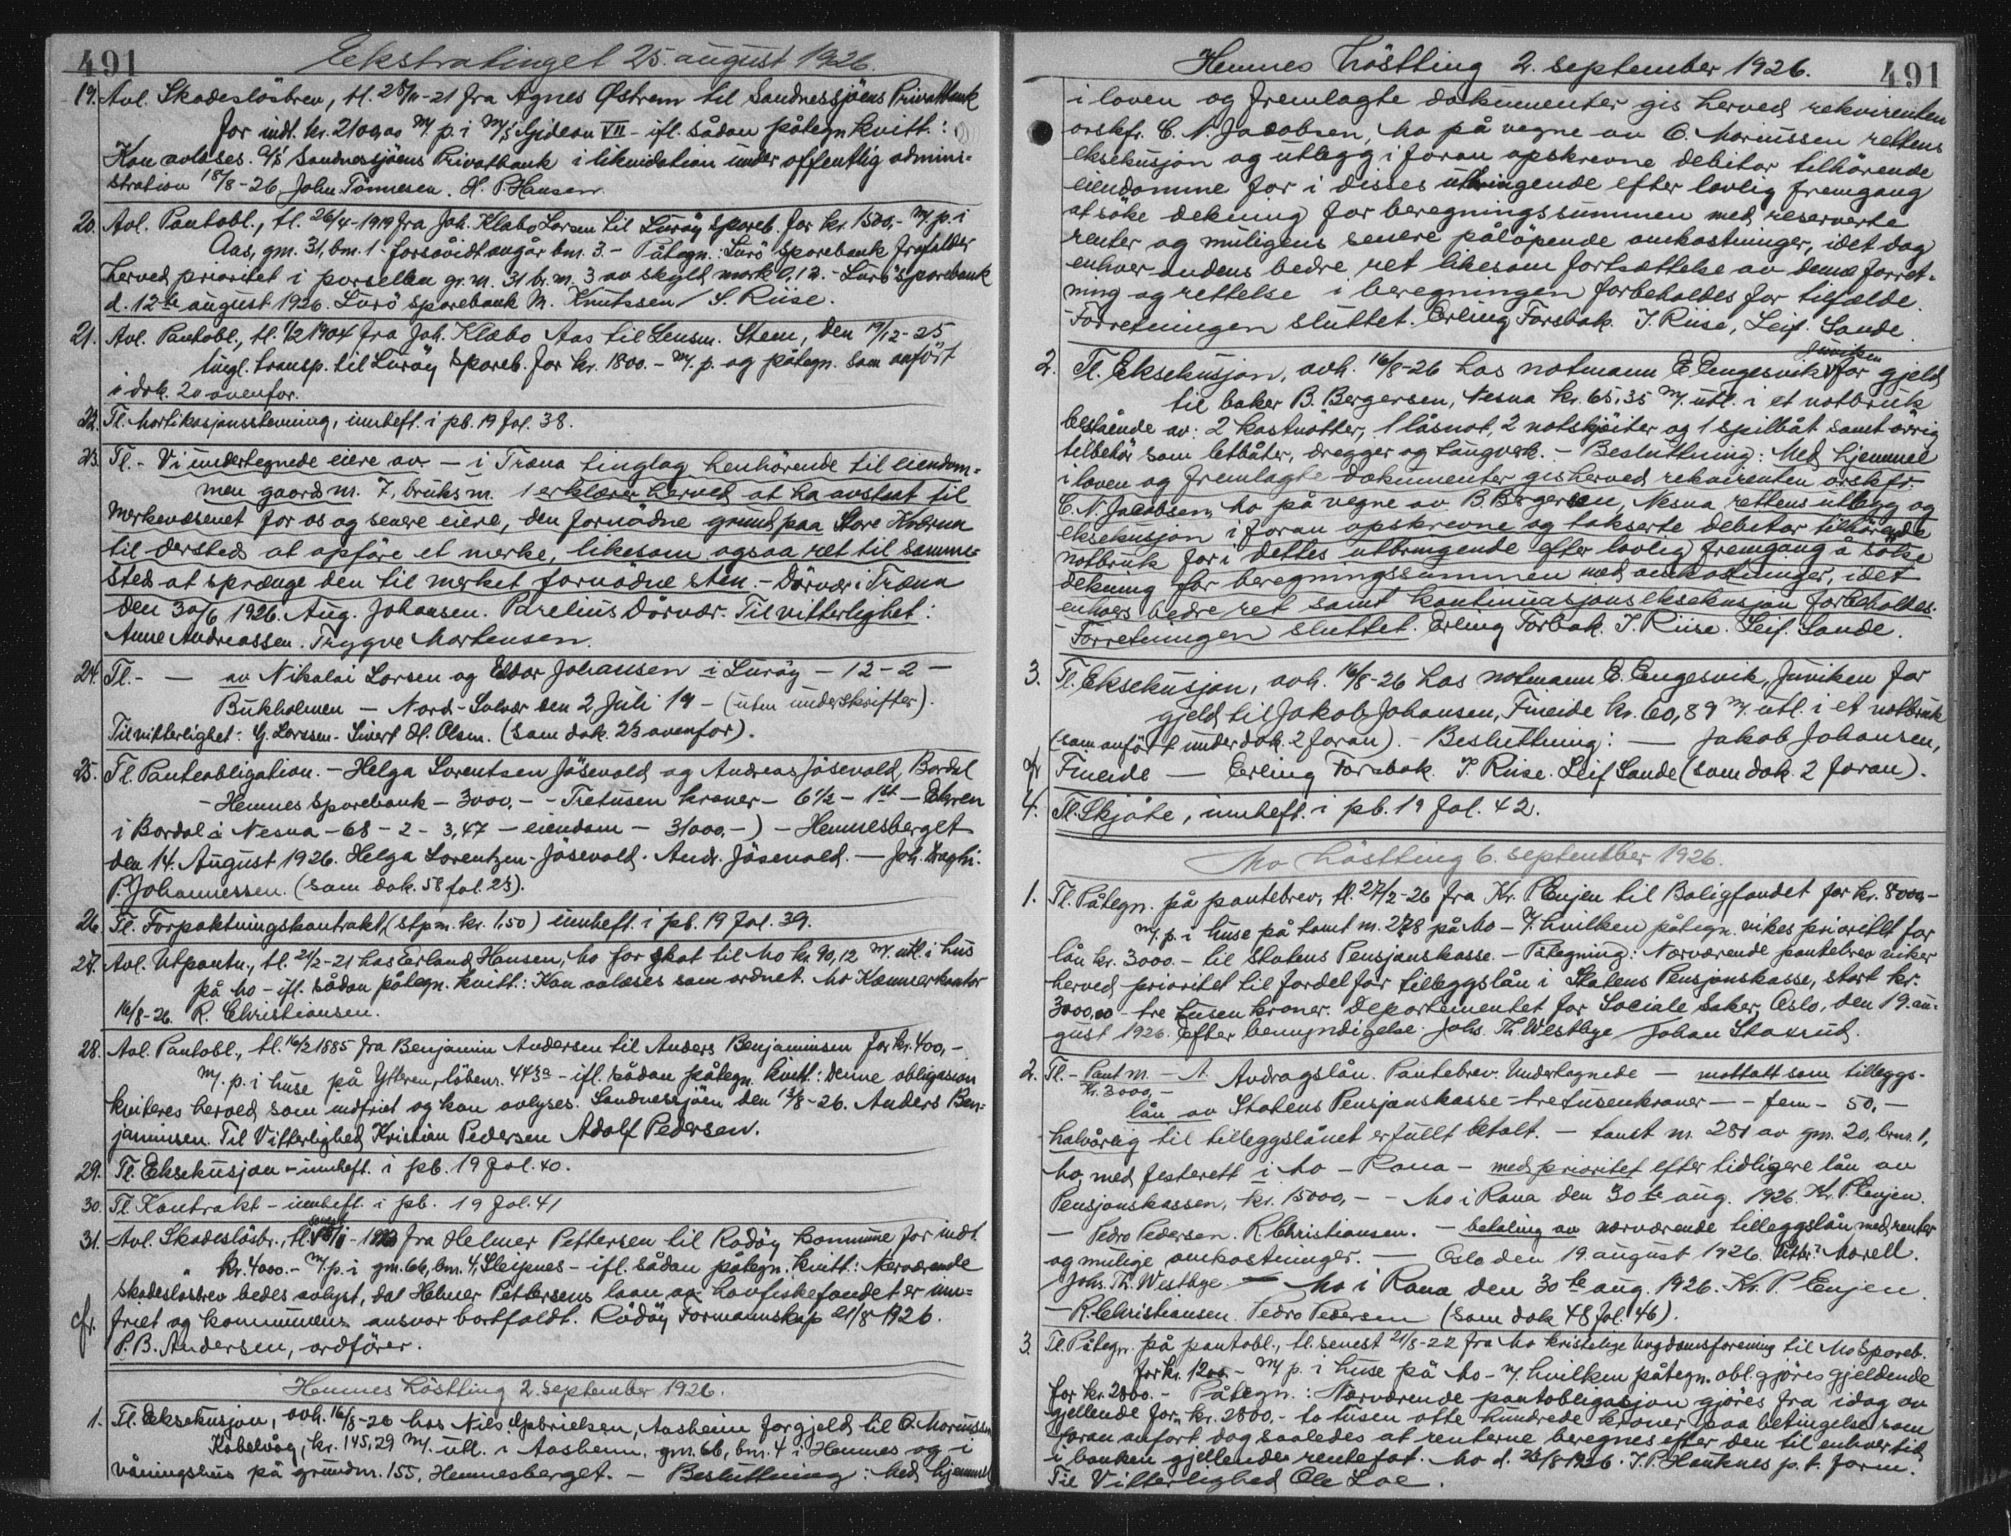 491
Ekstratinget 25. august 1926.
19. Avl. Skadeslösbrev, tl. 28/11-21 fra Agnes Østrem til Sandnessjöens Privatbank
for indt. kr. 2100,00 m/p. i m/s Gideon VII - ifl. sådan påtegn. kvitt.:
Kan avlæses. A/S Sandnessjöens Privatbank i likvidation under offentlig admini-
stration 18/8-26. John Tönnesen. H. P. Hansen.
20. Avl. Pantobl., tl. 26/4-1919 fra Joh. Klæbo Larsen til Luröy Spareb. for kr. 1500,- m/p. i
Aas, gm. 31, bm. 1 - forsåvidt angår bm. 3. - Påtegn.: Lurö Sparebank frafalder
herved prioritet i parsellen gr. m. 31 br. m. 3 av skyld mark 0.12. - Lurö Sparebank
d. 12te august 1926. Lurö Sparebank M. Knutssen / S. Riise.
21. Avl. Pantobl., tl. 1/2 1904 fra Joh. Klæbo Aas til Lensm. Stem, den 19/12-25
tingl. transp. til Luröy Spareb. for kr. 1800. - m/p. og påtegn. som anfört
i dok. 20 ovenfor.
22. Tl. Mortifikasjonsstevning, innheft. i pb. 19 fol. 38.
23. Tl. - Vi undertegnede eiere av - i Træna tinglag henhörende til eiendom-
men gaards m. 7, bruks m. 1 erklærer herved at ha avstaat til
Merkevæsenet for os og senere eiere, den fornödne grund paa Store
til dersteds at opföre et merke, likesom ogsaa ret til samme-
steds at sprænge den til merket fornödne sten. - Dörvær i Træna
den 30/6 1926. Aug. Johansen. Parelius Dörvær. Til vitterlighet:
Anne Andreassen. Trygve Mortensen.
24. Tl. - — av Nikolai Larsen og Edvar Johansen i Luröy - 12 - 2 -
Bukholmen - Nord-Solvær den 2 Juli 19 - (uten underskrifter).
Til vitterlighet: G. Larssen. Sivert H. Olsen. (som dok. 23 ovenfor).
25. Tl. Panteobligation. - Helga Lorentsen Jösevold og Andreas Jösevold, Bardal
- Hemnes Sparebank - 3000,- - Tretusen kroner - 6½ - 1ste - Ekren
i Bardal i Nesna - 68 - 2 - 3,47 - eiendom - 31000,-) - Hemnesberget
den 14. August 1926. Helga Lorentzen-Jösevold. Andr. Jösevold. - Joh.
P. Johannessen. (som dok. 58 fol. 23).
26. Tl. Forpaktningskontrakt, (stpm. kr. 1,50) innheft. i pb. 19 fol. 39.
27. Avl. Utpantn., tl. 21/2-21 hos Erland Hansen, Mo for skat til Mo kr. 90,12 m/utl. i hus
på Mo - ifl. sådan påtegn. kvitt.: Kan avlæses som ordnet. Mo Kæmnerkontor
16/8-26. R. Christiansen.
28. Avl. Pantobl., tl. 16/2 1885 fra Benjamin Andersen til Anders Benjaminsen for kr. 400,-
m/p. i huse på Ytteren, löbenr. 443a - ifl. sådan påtegn. kvitt.: Denne obligasion
kviteres herved som indfriet og kan avlyses. Sandnessjöen den 13/8-26. Anders Ben-
jaminsen. Til Vitterlighed Kristian Pedersen Adolf Pedersen.
29. Tl. Eksekusjon - innheft. i pb. 19 fol. 40.
30. Tl. Kontrakt - innheft. i pb. 19 fol. 41
31. Avl. Skadeslösbr., tl. senest /11-1923 fra Helmer Pettersen til Rödöy kommune for indt.
kr. 4000.- m/p. i gm. 66, bm. 4, Sleipnes - ifl. sådan påtegn. kvitt.: Nerværende
skadeslösbrev bedes avlyst, da Helmer Pettersens laan av Havfiskefondet er inn-
cfr. friet og kommunens ansvar bortfaldt. Rödöy Formannskap 21/8-1926.
P. B. Andersen, ordförer.
Hemnes hösttting 2. september 1926.
1. Tl. Eksekusjon, avh. 16/8-26 hos Nils Gabrielsen, Aasheim for gjeld til O. Mornissen
Kabelvåg, kr. 145,29 m/utl. i Aasheim, gm. 66, bm. 4 i Hemnes og i
våningshus på grundm. 155, Hemnesberget. - Besluttning: Med hjemmel
491
Hemnes hösttting 2. september 1926.
i loven og fremlagte dokumenter gis herved rekvirenten
orskfr. C. N. Jacobsen, Mo på vegne av O. Mornissen rettens
eksekusjon og utlegg i foran opskrevne debitor tilhörende
eiendomme for i disses utbringende efter lovlig fremgang
at söke dekning for beregningssummen med reserverte
renter og muligens senere påløpende omkostninger, idet dog
enhver andens bedre ret likesom fortsættelse av denne forret-
ning og rettelse i beregningen forbeholdes for tilfælde.
- Forretningen sluttet. Erling Forsbak. J. Riise, Leif. Sande.
2. Tl. Eksekusjon, avh. 16/8-26 hos notmann E. Engesvik, Juviken for gjeld
til baker B. Bergersen, Nesna kr. 65,35 m/utl. i et notbruk
bestående av: 2 kastnötter, 1 låsnot, 2 notskjöiter og 1 spilbåt samt övrig
tilbehör som letbåter, dregger og taugverk. - Besluttning: Med hjemmel
i loven og fremlagte dokumenter gis herved rekvirenten orskfr.
C. N. Jacobsen, Mo på vegne av B. Bergersen, Nesna rettens utlegg og
eksekusjon i foran opskrevne og takserte debitor tilhörende
notbruk for i dettes utbringende efter lovlig fremgang å söke
dekning for beregningssummen med omkostninger, idet
enhvers bedre ret samt kontinuasjonseksekusjon forbeholdes.
- Forretningen sluttet. Erling Forbak. J. Riise. Leif. Sande.
3. Tl. Eksekusjon, avh. 16/8-26 hos notmann E. Engesvik, Juviken for
gjeld til Jakob Johansen, Fineide kr. 60,89 m/utl. i et notbruk
(som anfört under dok. 2 foran). - Besluttning: — Jakob Johansen,
Fineide — Erling Forsbak. J. Riise. Leif Sande (som dok. 2 foran).
4. Tl. Skjöte, innheft. i pb. 19 fol. 42.
Mo hösttting 6. september 1926.
1. Tl. Påtegn. på pantebrev, tl. 27/2-26 fra Kr. P. Enjen til Boligfondet for kr. 8000,-
m/p. i huse på tomt m. 278 på Mo - v/hvilken påtegn. vikes prioritet for
lån kr. 3000.- til Statens Pensjonskasse. - Påtegning: Nærværende pantebrev viker
herved prioritet til fordel for tilleggslån i Statens Pensjonskasse, stort kr.
3000,00 - tre tusen kroner. Departementet for Sociale Saker, Oslo, den 19. au-
gust 1926. Efter bemyndigelse. Johs. Th. Westbye / Johan Staxrud.
2. Tl. - Pant m. - A Avdragslån. Pantebrev. Undertegnede - mottatt som tilleggs-
kr. 3000,-
lån av Statens Pensjonskasse - tretusenkroner - - fem - 50,-
halvårlig til tilleggslånet er fullt betalt. - tomt m. 281 av gm. 20, brm. 1,
Mo, med festerett i Mo - Rana - med prioritet efter tidligere lån av
Pensjonskassen, kr. 15000,- - Mo i Rana den 30te aug. 1926. Kr. P. Enjen.
- Pedro Pedersen. R. Christiansen. - betaling av nærværende tilleggslån med renter
og mulige omkostninger. — Oslo den 19 august 1926. Morell.
Johs. Th. Westbye. — Mo i Rana den 30te aug. 1926. Kr. P. Enjen.
- R. Christiansen. Pedro Pedersen (som dok 48 fol. 46).
3. Tl. Påtegn. på pantobl., tl. senest 21/8-22 fra Mo kristelige Ungdomsforening til Mo Spareb.
for kr. 1200.- m/p. i huse på Mo - v/hvilken påtegn. obl. gjöres gjeldende
for kr. 2800.- Påtegn.: Nærværende pantobligasjon gjöres fra idag av
gjellende for kr. 2800,- to tusen otte hundrede kroner paa betingelse som
foran anfört dog saaledes at renterne beregnes efter den til enhver tid
i banken gjellende rentefot. Mo d. 23/8 1926. J. P. Hauknes p. t. form.
Til Vitterlighed Ole Loe.